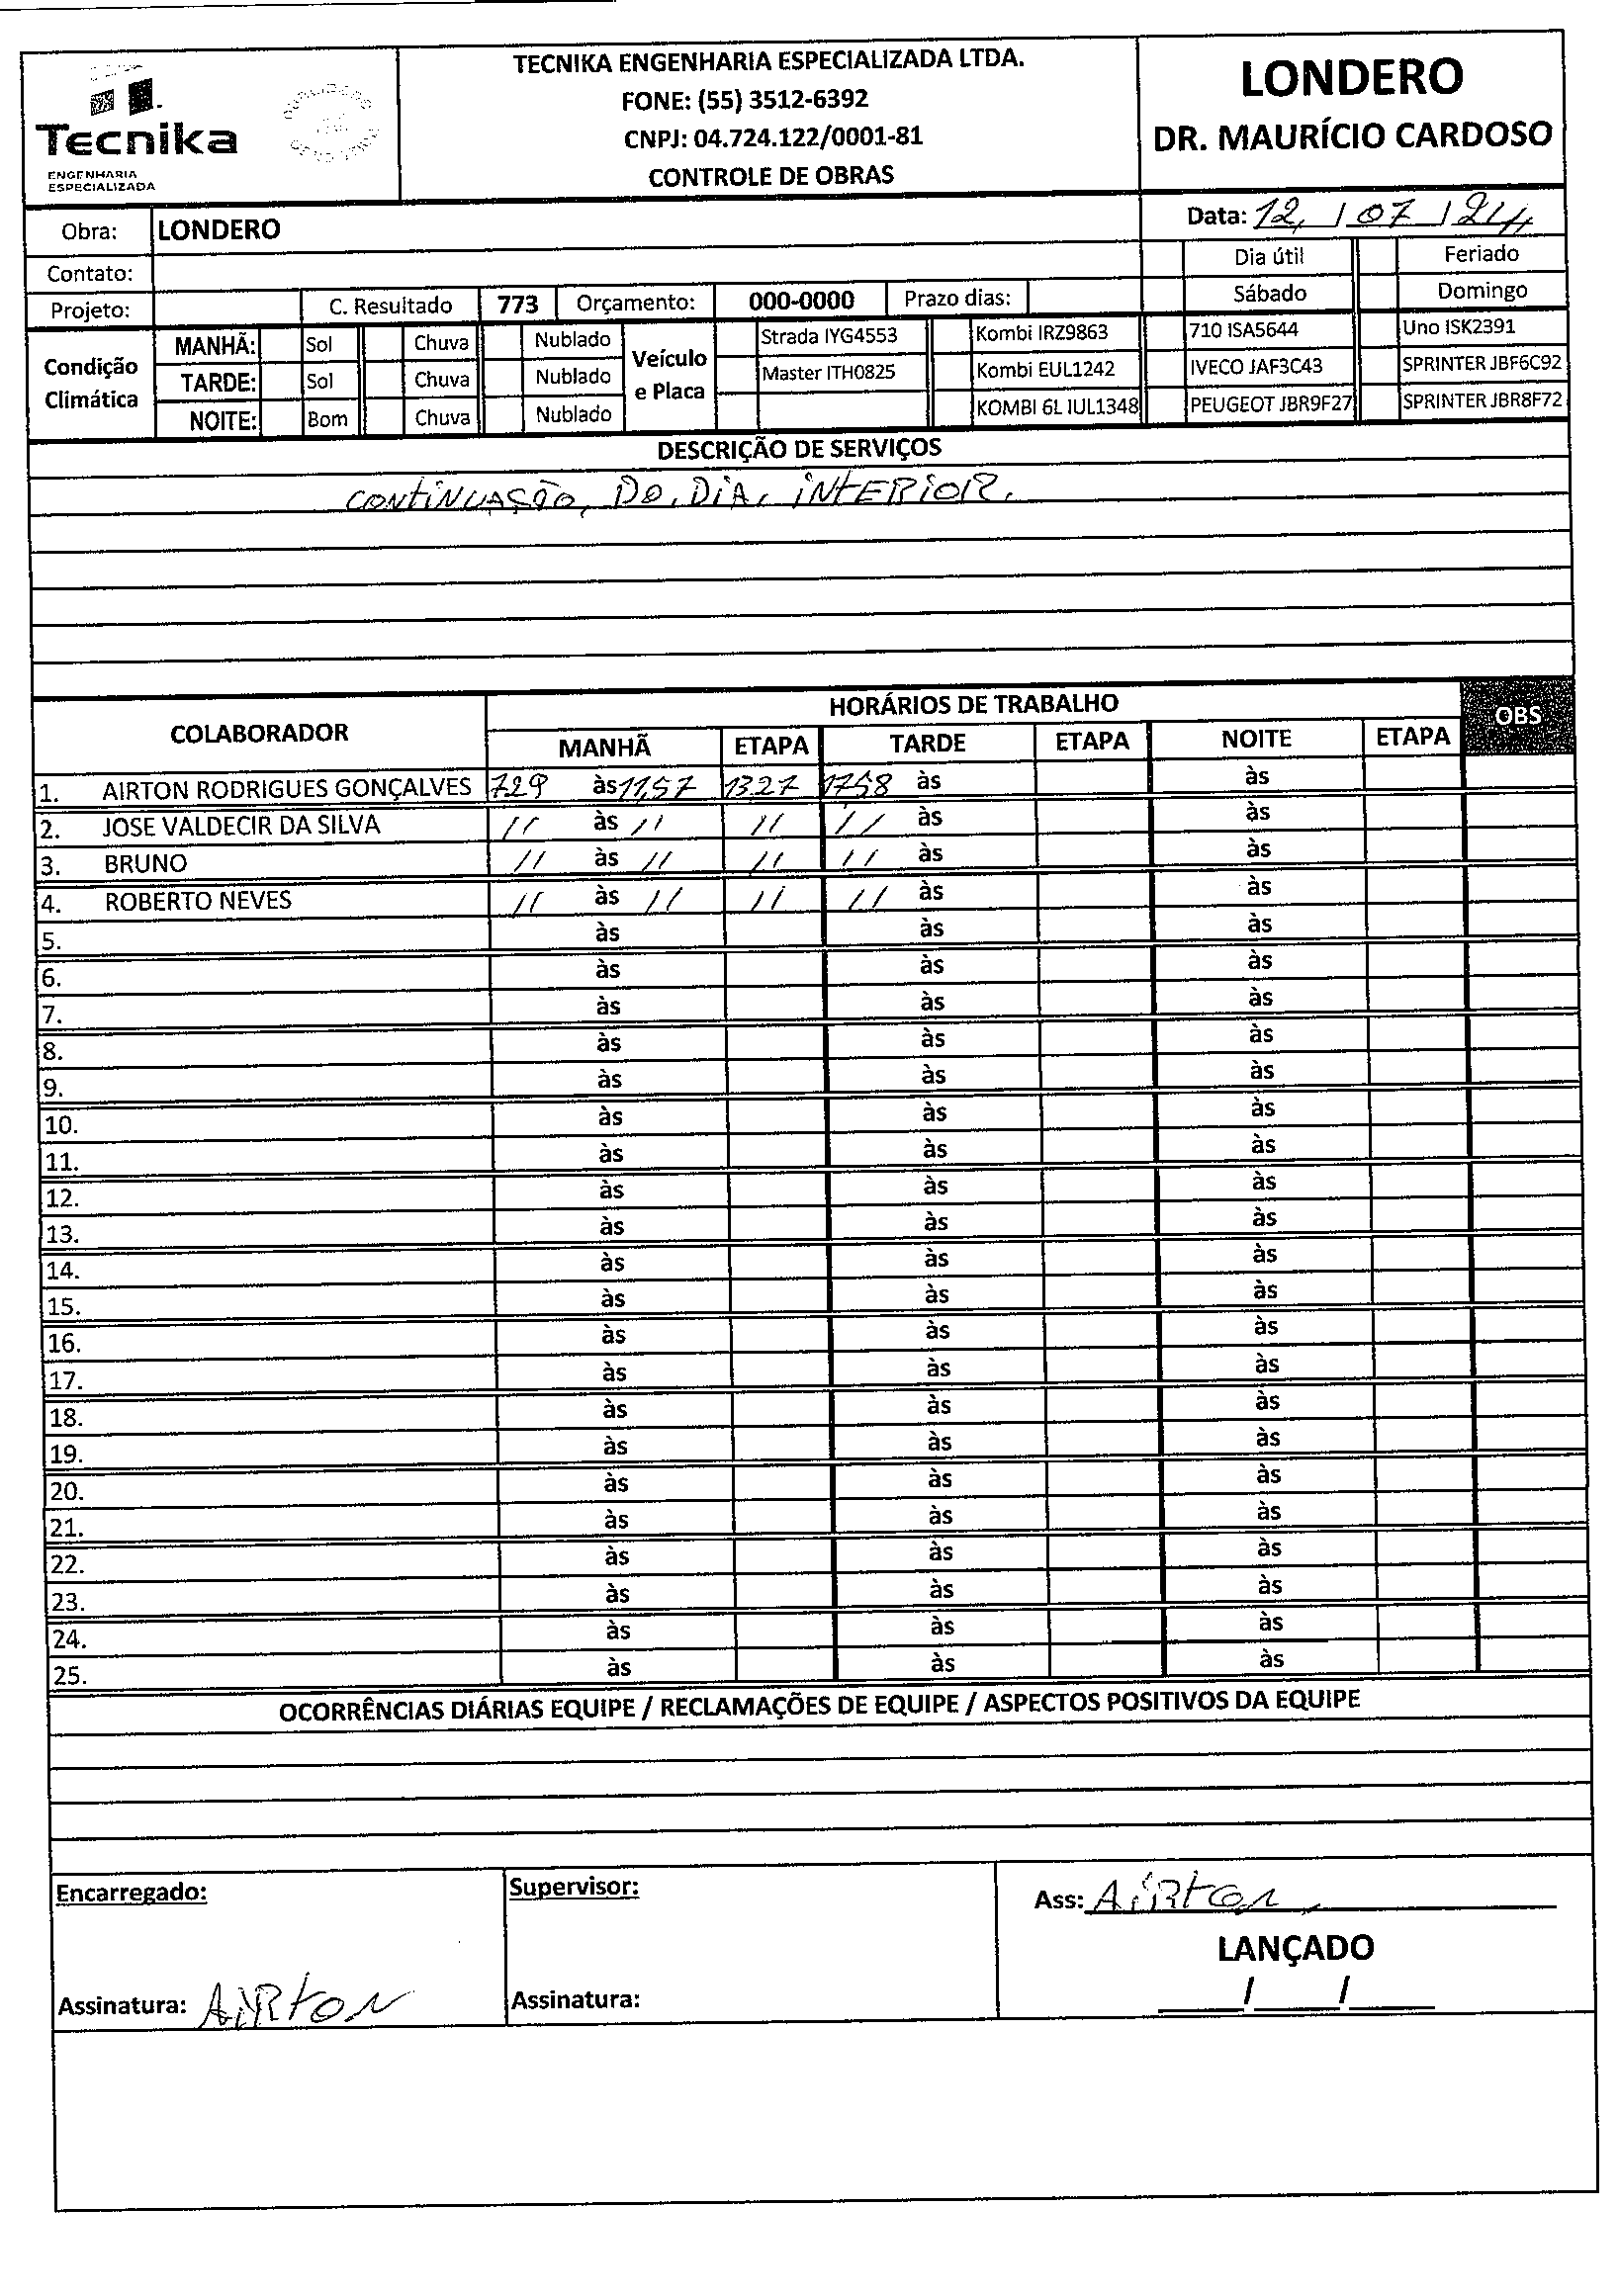 Tecnika
ENGENHARIA
ESPECIALIZADA
TECNIKA ENGENHARIA ESPECIALIZADA LTDA.
FONE: (55) 3512-6392
CNPJ: 04.724.122/0001-81
CONTROLE DE OBRAS
LONDERO
DR. MAURÍCIO CARDOSO
Obra: LONDERO
Data: 12, / 07 / 24,
Contato:
Dia útil Feriado
Projeto: C. Resultado 773 Orçamento: 000-0000 Prazo dias: Sábado Domingo
Condição Climática
MANHÃ: Sol Chuva Nublado
TARDE: Sol Chuva Nublado
NOITE: Bom Chuva Nublado
Veículo e Placa
Strada IYG4553 Kombi IRZ9863 710 ISA5644 Uno ISK2391
Master ITH0825 Kombi EUL1242 IVECO JAF3C43 SPRINTER JBF6C92
KOMBI 6L IUL1348 PEUGEOT JBR9F27 SPRINTER JBR8F72
DESCRIÇÃO DE SERVIÇOS
CONTINUAÇÃO, DO, DIA, INTERIOR.
COLABORADOR HORÁRIOS DE TRABALHO OBS
MANHÃ ETAPA TARDE ETAPA NOITE ETAPA
1. AIRTON RODRIGUES GONÇALVES 729 às 11,57 1327 1758 às às
2. JOSE VALDECIR DA SILVA // às // // // às às
3. BRUNO // às // // // às às
4. ROBERTO NEVES // às // // // às às
5. às às às
6. às às às
7. às às às
8. às às às
9. às às às
10. às às às
11. às às às
12. às às às
13. às às às
14. às às às
15. às às às
16. às às às
17. às às às
18. às às às
19. às às às
20. às às às
21. às às às
22. às às às
23. às às às
24. às às às
25. às às às
OCORRÊNCIAS DIÁRIAS EQUIPE / RECLAMAÇÕES DE EQUIPE / ASPECTOS POSITIVOS DA EQUIPE
Encarregado:
Assinatura: AiRton
Supervisor:
Assinatura:
Ass: AiRton,
LANÇADO
/ /